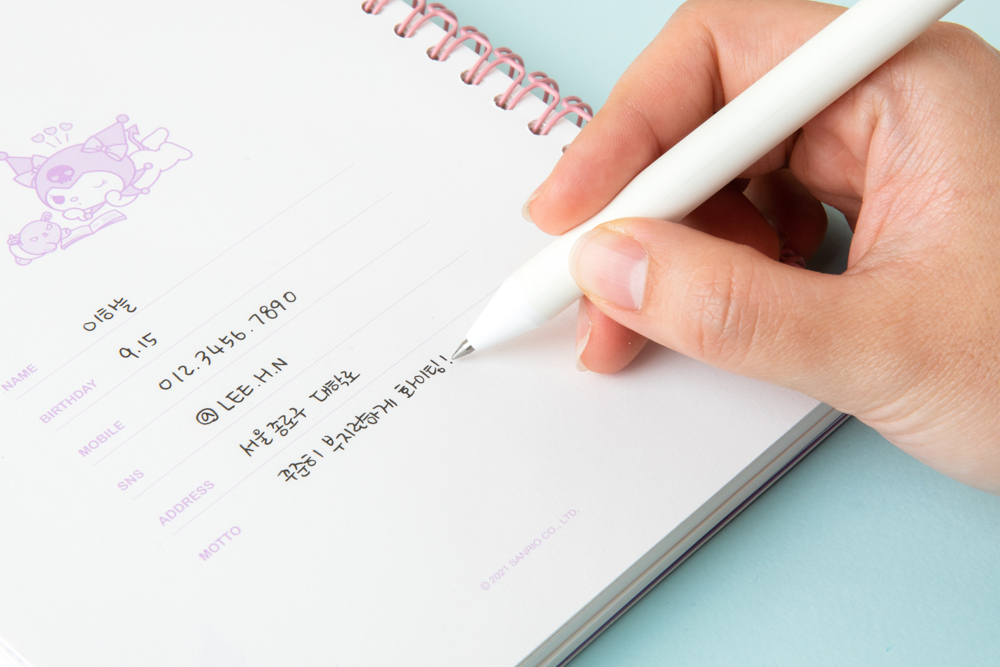 NAME 이하늘
BIRTHDAY 9.15
MOBILE 012.3456.7890
SNS @LEE.H.N
ADDRESS 서울 종로구 대학로
MOTTO 꾸준히 부지런하게 화이팅!
© 2021 SANRIO CO., LTD.